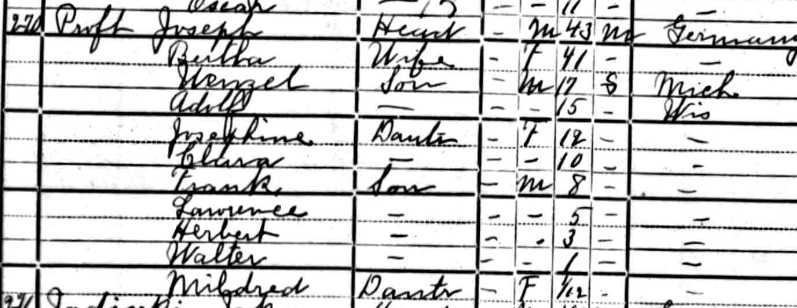 Oscar — 13 - - 11 - —
270 Proft Joseph Heart - M 43 M Germany
Bertha Wife - F 41 - —
Wenzel Son - M 17 S Mich
Adolf — - - 15 - Wis
Josephine Dautr - F 12 - —
Clara — - - 10 - —
Frank Son - M 8 - —
Lawrence — - - 5 - —
Herbert — - - 3 - —
Walter — - - 1 - —
Mildred Dautr - F 1/12 - —
271